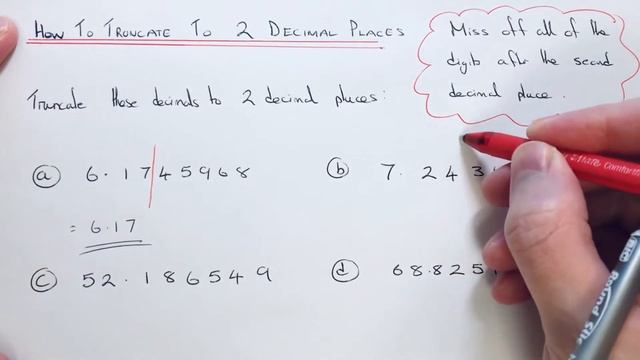 How To Truncate To 2 Decimal Places
Miss off all of the
digits after the second
decimal place.
Truncate these decimals to 2 decimal places:
a 6.1745968
= 6.17
b 7.243
c 52.186549
d 68.825